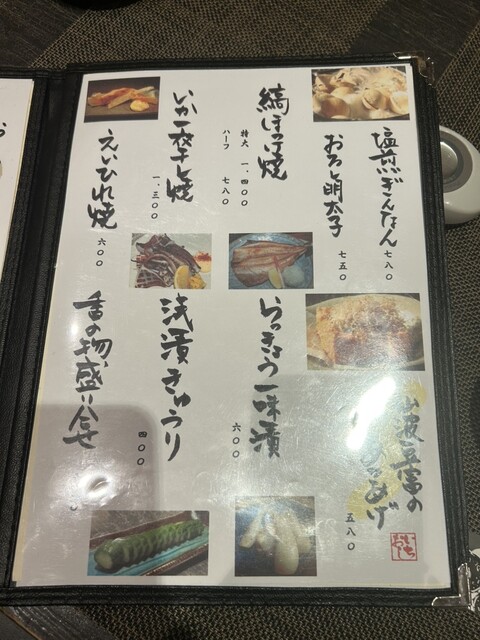 塩煎ぎんなん
七八〇
おろし明太子
七五〇
縞ほっけ焼
特大 一、四〇〇
ハーフ 七八〇
いか一夜干し焼
一、三〇〇
えいひれ焼
六〇〇
波豆富の
あげ
五八〇
いち
おし
らっきょう一味漬
六〇〇
浅漬きゅうり
四〇〇
香の物盛り合せ